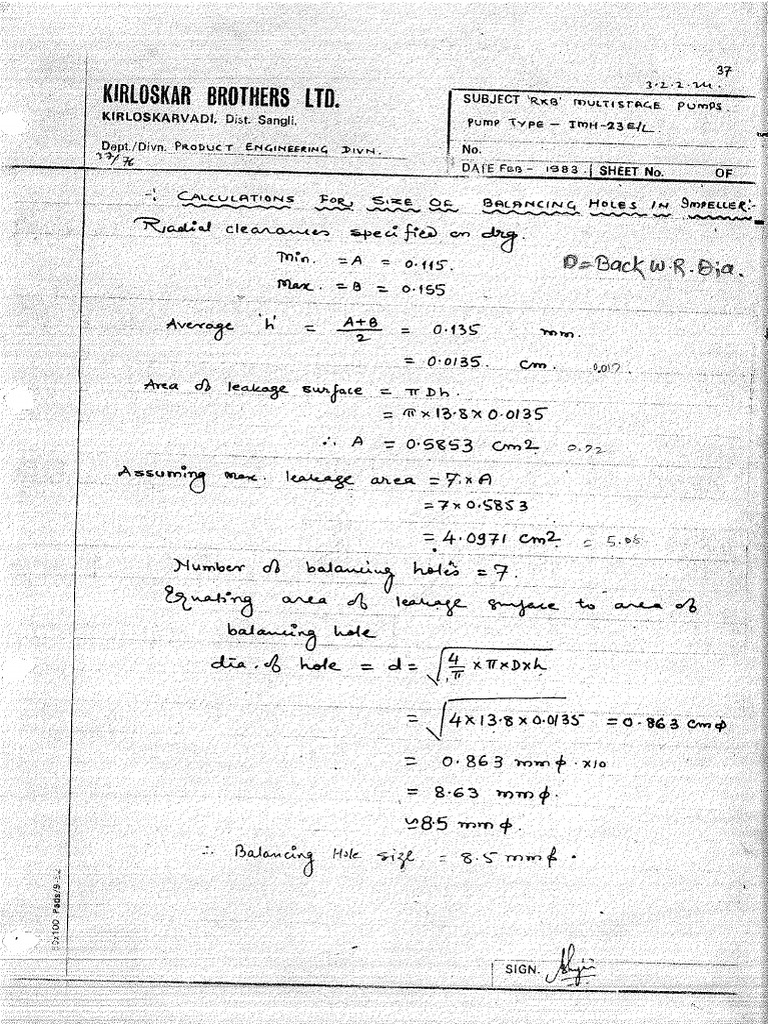 37
3.2.2.24.
KIRLOSKAR BROTHERS LTD.
KIRLOSKARVADI, Dist. Sangli.
Dept./Divn. PRODUCT ENGINEERING DIVN.
37/76
SUBJECT 'RKB' MULTISTAGE PUMPS.
PUMP TYPE - IMH-23E/L
No.
DATE FEB - 1983. SHEET No. OF
-: CALCULATIONS FOR SIZE OF BALANCING HOLES IN IMPELLER:-
Radial clearances specified on drg.
Min. = A = 0.115.
D = Back W.R. Dia.
Max. = B = 0.155
Average 'h' = A+B/2 = 0.135 mm.
= 0.0135. cm. 0.017
Area of leakage surface = π Dh.
= π × 13.8 × 0.0135
∴ A = 0.5853 cm2 0.72
Assuming max. leakage area = 7 × A
= 7 × 0.5853
= 4.0971 cm2 = 5.08
Number of balancing holes = 7.
Equating area of leakage surface to area of
balancing hole
dia. of hole = d = √4/π × π × D × h
= √4 × 13.8 × 0.0135 = 0.863 cm ϕ
= 0.863 mm ϕ. ×10
= 8.63 mm ϕ.
≃ 8.5 mm ϕ.
∴ Balancing Hole size = 8.5 mm ϕ.
SIGN.